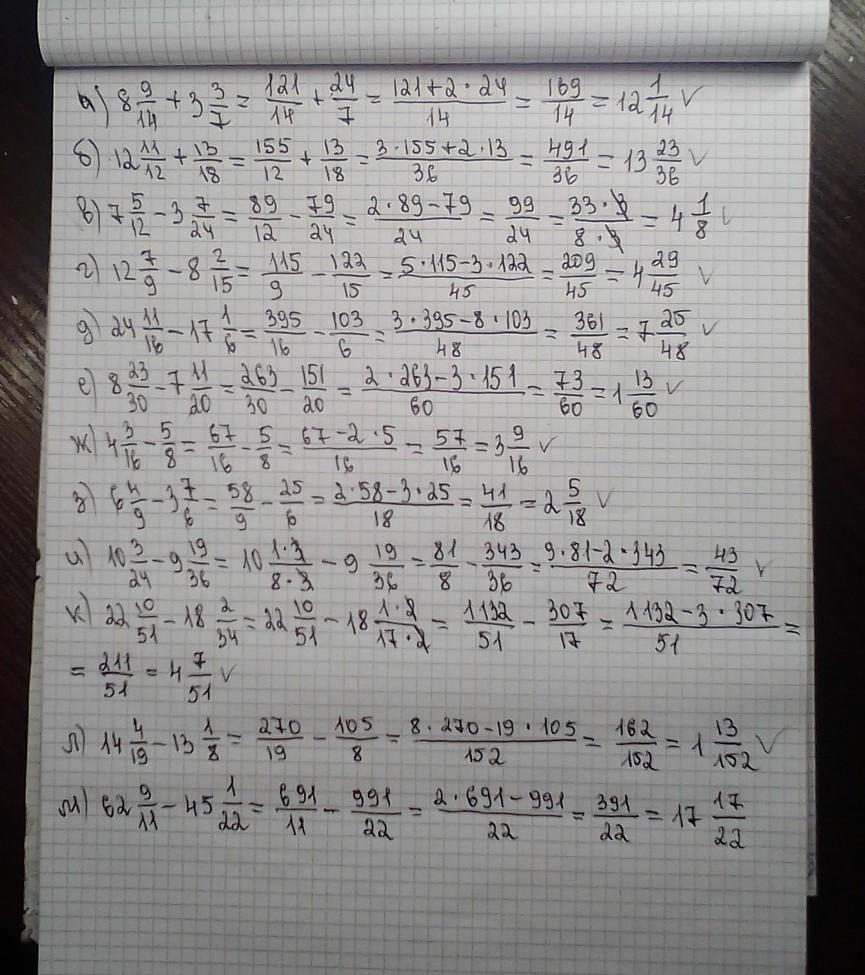 а) 8 9/14 + 3 3/7 = 121/14 + 24/7 = (121+2·24)/14 = 169/14 = 12 1/14 ✓
б) 12 11/12 + 13/18 = 155/12 + 13/18 = (3·155+2·13)/36 = 491/36 = 13 23/36 ✓
в) 7 5/12 - 3 7/24 = 89/12 - 79/24 = (2·89-79)/24 = 99/24 = (33·3)/(8·3) = 4 1/8 ✓
г) 12 7/9 - 8 2/15 = 115/9 - 122/15 = (5·115-3·122)/45 = 209/45 = 4 29/45 ✓
д) 24 11/16 - 17 1/6 = 395/16 - 103/6 = (3·395-8·103)/48 = 361/48 = 7 25/48 ✓
е) 8 23/30 - 7 11/20 = 263/30 - 151/20 = (2·263-3·151)/60 = 73/60 = 1 13/60 ✓
ж) 4 3/16 - 5/8 = 67/16 - 5/8 = (67-2·5)/16 = 57/16 = 3 9/16 ✓
з) 6 4/9 - 3 7/6 = 58/9 - 25/6 = (2·58-3·25)/18 = 41/18 = 2 5/18 ✓
и) 10 3/24 - 9 19/36 = 10 (1·3)/(8·3) - 9 19/36 = 81/8 - 343/36 = (9·81-2·343)/72 = 43/72 ✓
к) 22 10/51 - 18 2/34 = 22 10/51 - 18 (1·2)/(17·2) = 1132/51 - 307/17 = (1132-3·307)/51 =
= 211/51 = 4 7/51 ✓
л) 14 4/19 - 13 1/8 = 270/19 - 105/8 = (8·270-19·105)/152 = 162/152 = 1 13/152 ✓
м) 62 9/11 - 45 1/22 = 691/11 - 991/22 = (2·691-991)/22 = 391/22 = 17 17/22